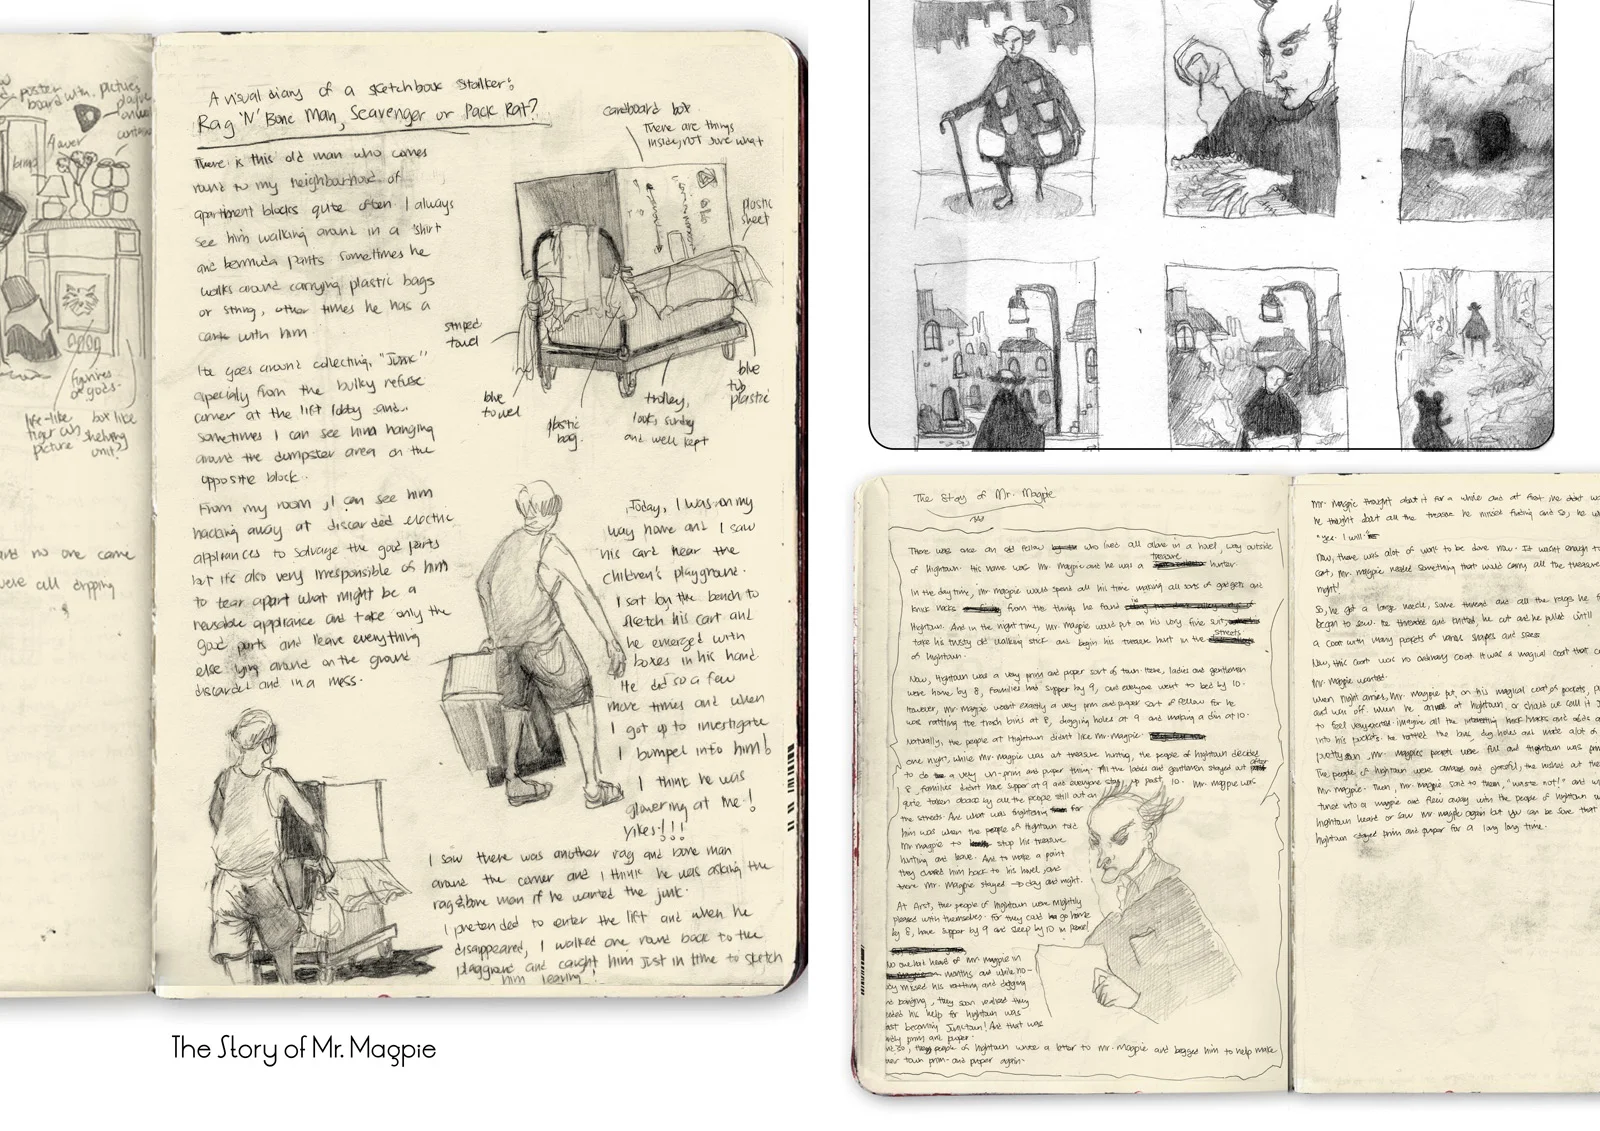 poster
board with pictures
flower
figures
of gods
life-like
tiger
picture
box like
shelving
unit?
and no one came
were all dripping
A visual diary of a sketchbook stalker:
Rag 'N' Bone Man, Scavenger or Pack Rat?
There is this old man who comes
round to my neighbourhood of
apartment blocks quite often I always
see him walking around in a shirt
and bermuda pants sometimes he
walks around carrying plastic bags
or string, other times he has a
cart with him
He goes around collecting, "Junk"
especially from the bulky refuse
corner at the lift lobby and..
sometimes I can see him hanging
around the dumpster area on the
opposite block.
From my room, I can see him
hacking away at discarded electric
appliances to salvage the good parts
but it's also very irresponsible of him
to tear apart what might be a
reusable appliance and take only the
good parts and leave everything
else lying around on the ground
discarded and in a mess.
cardboard box
There are things
inside, not sure what
plastic
sheet
striped
towel
blue
towel
plastic
bag
trolley,
looks sturdy
and well kept
blue
tub
plastic
Today, I was on my
way home and I saw
his cart near the
children's playground.
I sat by the bench to
sketch his cart and
he emerged with
boxes in his hand.
He did so a few
more times and when
I got up to investigate
I bumped into him!
I think he was
glowering at me!
Yikes!!!
I saw there was another rag and bone man
around the corner and I think he was asking the
rag&bone man if he wanted the junk.
I pretended to enter the lift and when he
disappeared, I walked one round back to the
playground and caught him just in time to sketch
him leaving!
The Story of Mr. Magpie
The Story of Mr. Magpie
There was once an old fellow who lived all alone in a hovel, way outside
treasure
of Hightown. His name was Mr. Magpie and he was a hunter
In the day time, Mr. Magpie would spend all his time making all sorts of gadgets and
knick knacks from the things he found in
Hightown. And in the night time, Mr. Magpie would put on his very fine suit,
take his trusty old walking stick and begin his treasure hunt in the streets
of Hightown.
Now, Hightown was a very prim and proper sort of town. There, ladies and gentlemen
were home by 8, families had supper by 9, and everyone went to bed by 10.
However, Mr. Magpie wasn't exactly a very prim and proper sort of fellow for he
was rattling the trash bins at 8, digging holes at 9 and making a din at 10.
Naturally, the people at Hightown didn't like Mr. Magpie.
One night, while Mr. Magpie was at treasure hunting, the people of Hightown decided
to do a very un-prim and proper thing. All the ladies and gentlemen stayed out after
8, families didn't have supper at 9 and everyone stay up past 10. Mr. Magpie was
quite taken aback by all the people still out on
the streets. And what was frightening for
him was when the people of Hightown told
Mr Magpie to stop his treasure
hunting and leave. And to make a point
they chased him back to his hovel, and
there Mr. Magpie stayed day and night.
At first, the people of Hightown were mightily
pleased with themselves. For they could go home
by 8, have supper by 9 and sleep by 10 in peace!
No one had heard of Mr. Magpie in
months and while no-
missed his rattling and digging
banging, they soon realised they
needed his help for Hightown was
fast becoming Junktown! And that was
prim and proper.
so, the people of Hightown wrote a letter to Mr. Magpie and begged him to help make
their town prim and proper again.
Mr. Magpie thought about it for a while and at first, he didn't
he thought about all the treasure he missed finding and so, he
"Yes. I will."
Now, there was alot of work to be done now. It wasn't enough to
cart, Mr. Magpie needed something that would carry all the treasure
night!
So, he got a large needle, some thread and all the rags he
began to sew. He threaded and knitted, he cut and he pulled until
a coat with many pockets of various shapes and sizes
Now, this coat was no ordinary coat. It was a magical coat that
Mr. Magpie wanted.
When night arrives, Mr. Magpie put on his magical coat of pockets,
and was off. When he arrived at Hightown, or should we call it
to feel very excited. Imagine all the interesting knick knacks and
into his pockets. He rattled the bins, dug holes and made alot of
pretty soon, Mr. Magpie's pockets were full and Hightown was
The people of Hightown were amazed and grateful, they
Mr Magpie. Then, Mr. Magpie said to them, "waste not!" and
turned into a magpie and flew away with the people of Hightown
Hightown heard or saw Mr magpie again but you can be sure that
Hightown stayed prim and proper for a long long time.